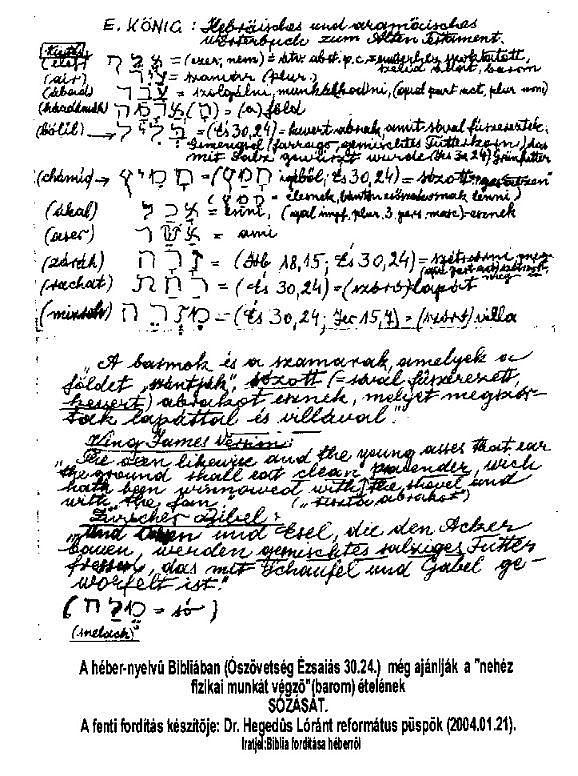 E. KÖNIG: Hebräisches und aramäisches
Wörterbuch zum Alten Testament.
(elef)
(air) עַיִר = szamár (plur.)
(ábad) עָבַד = szolgálni, munkálkodni, (qal part act, plur nom)
= (a) föld
(bálil) → בְּלִיל = (És 30,24) = kevert abrak, amit sóval fűszereztek.
Gemengsel (farrago, gemischtes Futterkorn) das
mit Salz gewürzt wurde (Jes 30,24) Grünfutter
(chámic) → חָמִיץ = (חָמֵץ igéből; És 30,24) = sózott "gesalzen"
(ákal) אָכַל = enni, (qal impf. plur. 3. pers masc) - esznek
(aser) אֲשֶׁר = ami
(zárâh) זָרָה = (Job 18,15; És 30,24) = szétszórni
(rachat) רַחַת = (És 30,24) = (szóró) lapát
(mizreh) מִזְרֶה = (És 30,24; Jer 15,7) = (szóró) villa
„A barmok és a szamarak, amelyek a
földet „szántják", sózott (= sóval fűszerezett,
kevert) abrakot esznek, melyet megszór-
tak lapáttal és villával."
King James Version:
„The oxen likewise and the young asses that ear
the ground shall eat clean provender, wich
hath been winnowed with the shovel und
with the fan. („tiszta abrakot")
Zürcher Bibel:
„und Ochsen und Esel, die den Acker
bauen, werden gemischtes salziges Futter
fressen, das mit Schaufel und Gabel ge-
worfelt ist."
(מֶלַח = só)
(melach)
A héber-nyelvű Bibliában (Ószövetség Ézsaiás 30.24.) még ajánlják a "nehéz
fizikai munkát végző"(barom) ételének
SÓZÁSÁT.
A fenti fordítás készítője: Dr. Hegedűs Lóránt református püspök (2004.01.21).
Iratjel:Biblia fordítása héberről